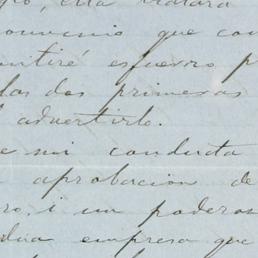 ella tratará
convenio que con
esfuerzo p
las dos primeras
advertirlo.
e mi conducta
aprobacion de
ro, i un poderos
empresa que